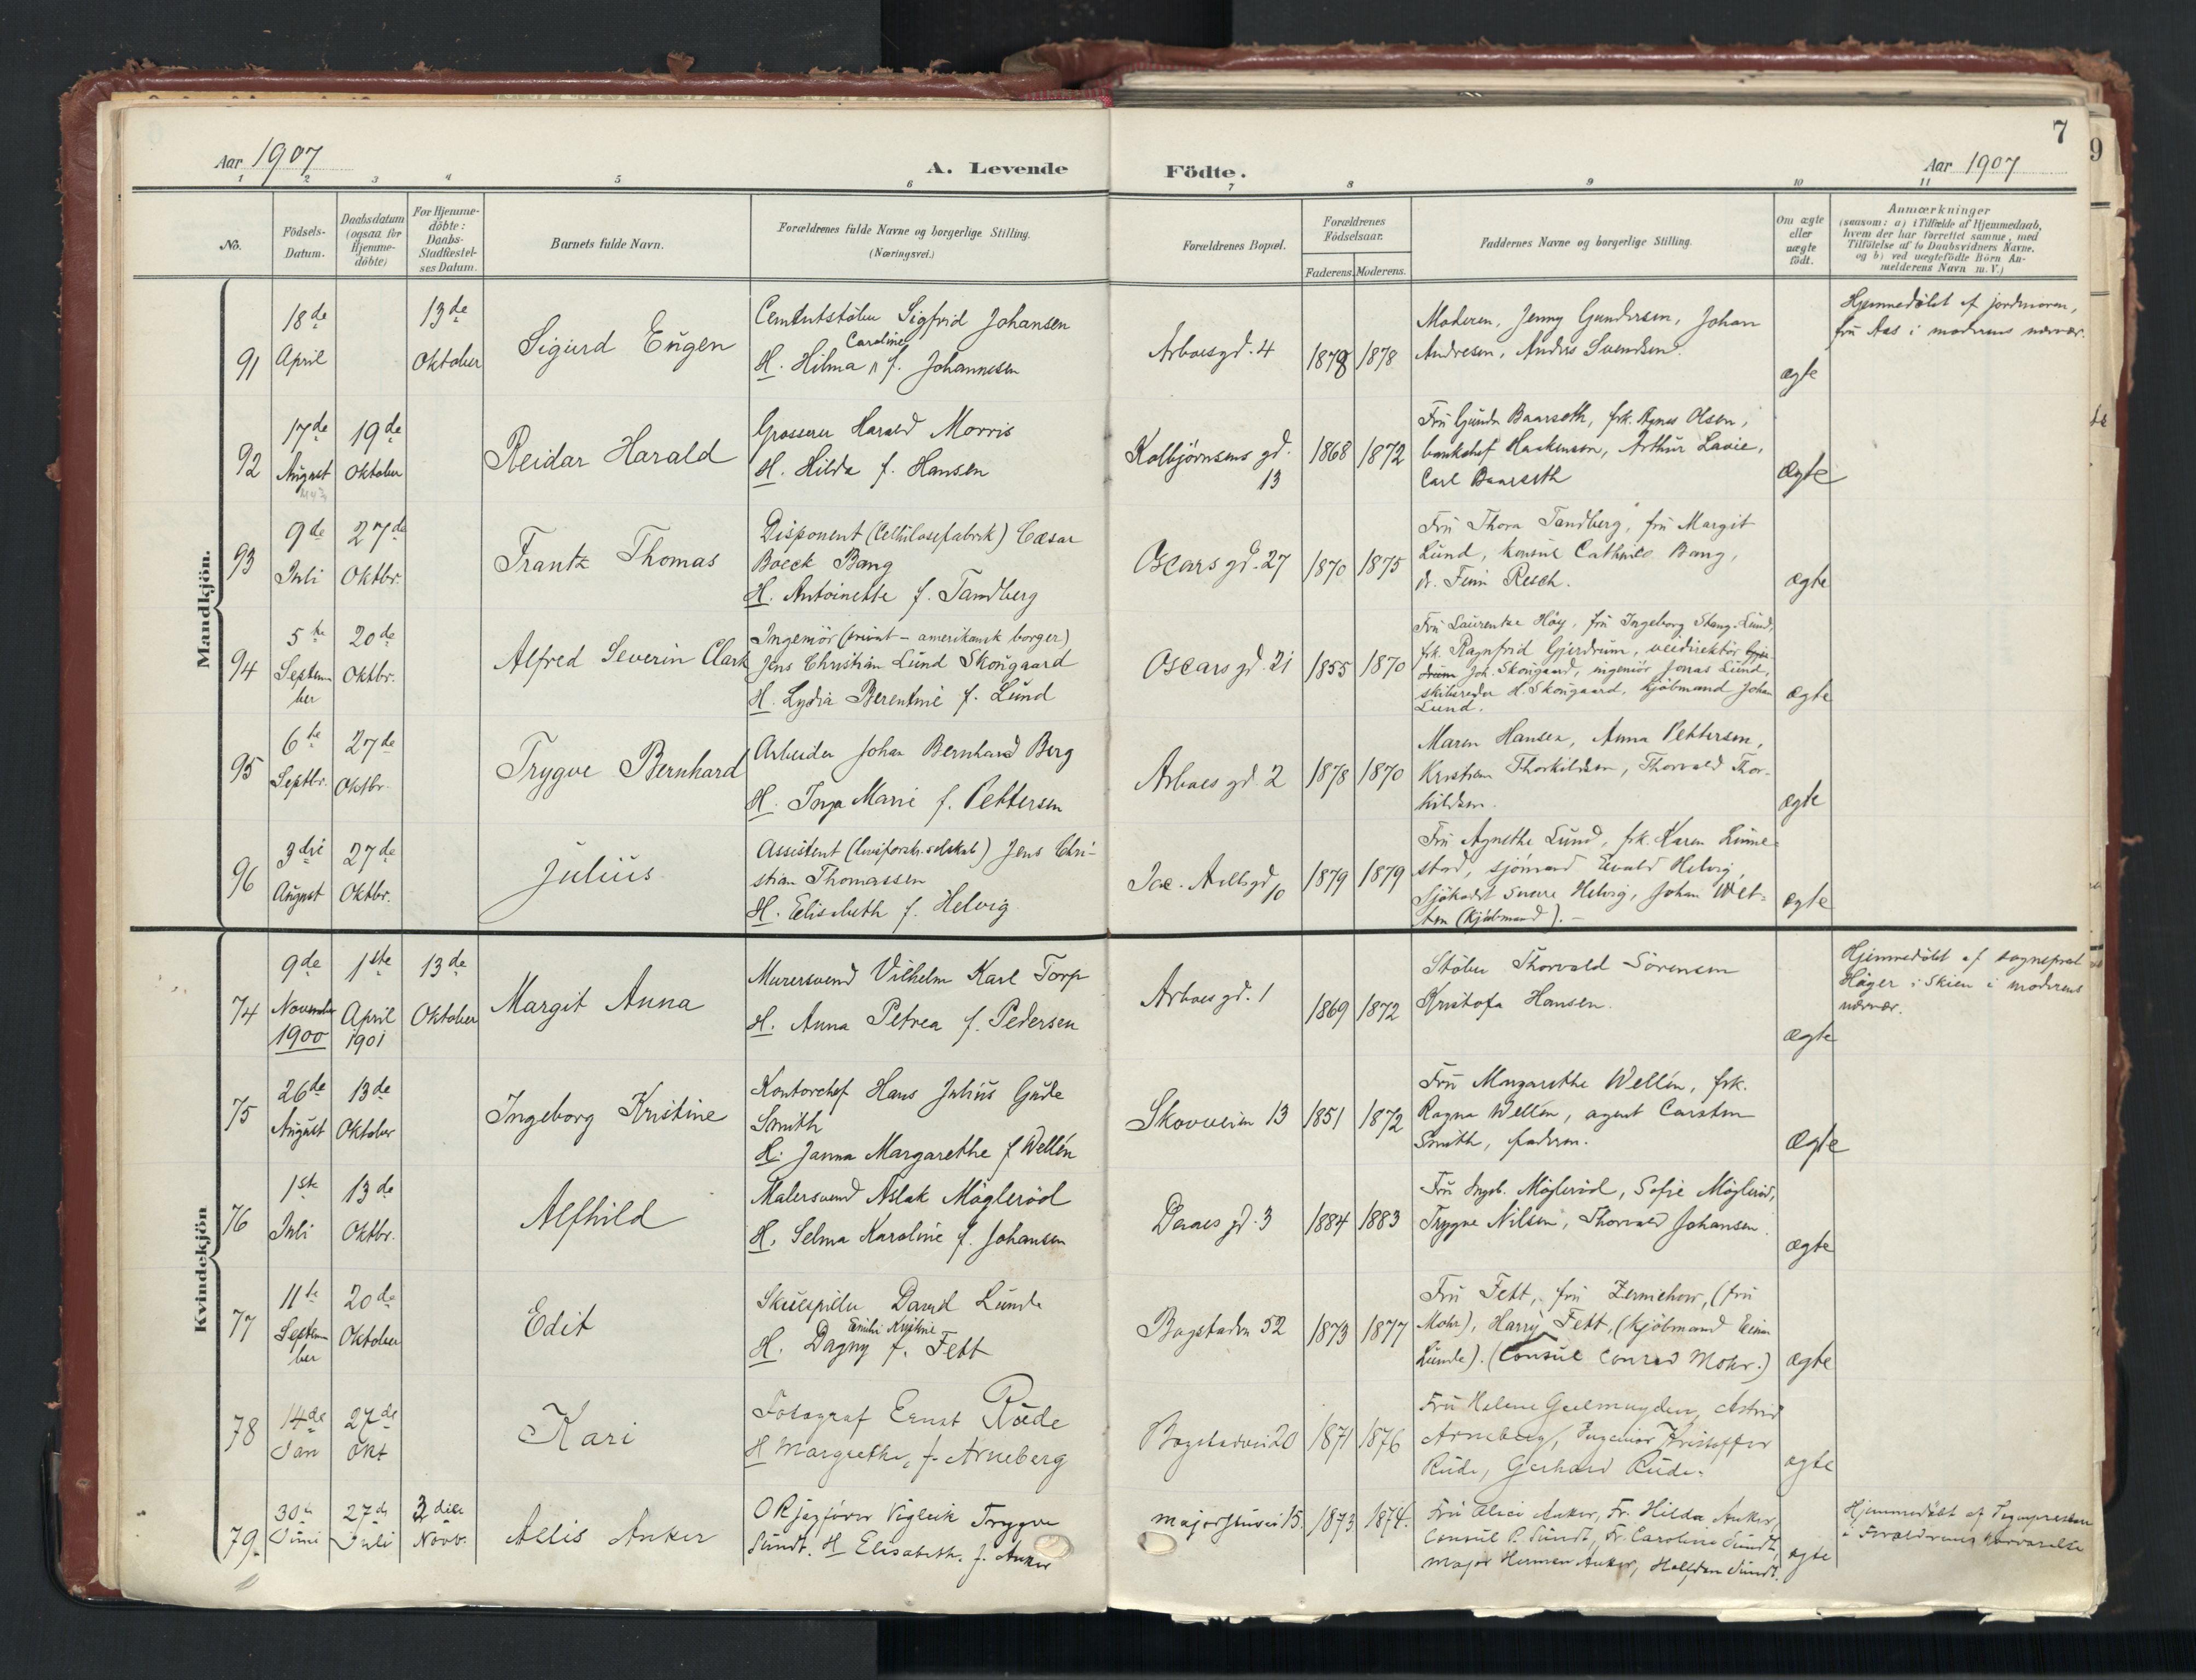 7
9
Aar 1907
A. Levende
Födte.
Aar 1907
1 2 3 4 5 6 7 8 9 10 11
No.
Födsels-
Datum.
Daabsdatum
(ogsaa for
Hjemme-
döbte)
For Hjemme-
döbte:
Daabs-
Stadfæstel-
ses Datum.
Barnets fulde Navn.
Forældrenes fulde Navne og borgerlige Stilling.
(Næringsvei.)
Forældrenes Bopæl.
Forældrenes
Födselsaar.
Faderens. Moderens.
Faddernes Navne og borgerlige Stilling.
Om ægte
eller
uægte
födt.
Anmærkninger
(saasom: a) i Tilfælde af Hjemmedaab,
hvem der har forrettet samme, med
Tilföielse af to Daabsvidners Navne.
og b) ved uægtefödte Börn An-
melderens Navn m. V.)
Mandkjön.
91
18de
April
13de
Oktober
Sigurd Eugen
Cementstøber Sigfrid Johansen
Caroline
H. Hilma f. Johannesen
Arboesgd. 4
1878
1878
Moderen, Jenny Gundersen, Johan
Andresen, Anders Svendsen.
ægte
Hjemmedøbt af jordmoren,
fru Aas i moderens nærvær.
92
17de
August
19de
Oktober
Reidar Harald
Grosserer Harald Morris
H. Hilda f. Hansen
Kolbjørnsens gd.
13
1868
1872
Fru Gunda Baarseth, frk. Agnes Olsen,
bankchef Haakenson, Arthur Lavie,
Carl Baarseth
ægte
93
9de
Juli
27de
Oktbr.
Frantz Thomas
Disponent (Cellulosefabrik) Cæsar
Boeck Bang
H. Antoinette f. Tandberg
Oscars gd. 27
1870
1875
Fru Thora Tandberg, fru Margit
Lund, konsul Bang,
dr. Finn Resch.
ægte
94
5te
Septem
ber
20de
Oktbr.
Alfred Severin Clark
Ingeniör (privat - amerikansk borger)
Jens Christian Lund Skougaard
H. Lydia Berentine f. Lund
Oscars gd. 21
1855
1870
Fru Laurentze Höy, fru Ingeborg Stang-Lund,
frk. Ragnfrid Gjerdrum, veidirektör Gjer
drum Joh. Skougaard, ingeniör Jonas Lund,
skibsreder H. Skougaard, kjöbmand Johan
Lund.
ægte
95
6te
Septbr.
27de
Oktbr.
Trygve Bernhard
Arbeider Johan Bernhard Berg
H. Inga Marie f. Pettersen
Arboes gd. 2
1878
1870
Maren Hansen, Anna Pettersen,
Kristian Thorkildsen, Thorvald Thor-
kildsen.
ægte
96
3die
August
27de
Oktbr.
Julius
Assistent (livsforsk.selskab) Jens Chri-
stian Thomassen
H. Elisabeth f. Helvig
Jac. Aallsgd
10
1879
1879
Fru Agnethe Lund, frk. Karen Linne-
stad, sjömand Ewald Helvig,
Sjökadet Helvig, Johan
(kjöbmand). -
ægte
Kvindekjön
74
9de
November
1900
1ste
April
1901
13de
Oktober
Margit Anna
Murersvend Vilhelm Karl Torp
H. Anna Petrea f. Pedersen
Arboes gd. 1
1869
1872
Støber Thorvald Sörensen
Kristofa Hansen.
ægte
Hjemmedøbt af sogneprest
Höyer i Skien i moderens
nærvær.
75
26de
August
13de
Oktober
Ingeborg Kristine
Kontorchef Hans Julius Gude
Smith
H. Janna Margarethe f Wellén
Skovveien 13
1851
1872
Fru Margarethe Wellén, frk.
Ragna Wellén, agent Carsten
Smith, faderen.
ægte
76
1ste
Juli
13de
Oktbr.
Alfhild
Malersvend Aslak Möglerød
H. Selma Karoline f. Johansen
Daaes gd. 3
1884
1883
Fru Ingeb. Möglerød, Sofie Möglerød,
Trygve Nilsen, Thorvald Johansen
ægte
77
11te
Septem
ber
20de
Oktober
Edit
Skuespiller David Lunde
Emilie Kristine
H. Dagny f. Fett
Bogstadvn 52
1873
1877
Fru Fett, fru Zernichow, (fru
Mohr), Harry Fett, (kjöbmand Einar
Lunde). (Consul Conrad Mohr.)
ægte
78
14de
Jan
27de
Okt
Kari
Fotograf Ernst Rude
H Margrethe, f. Arneberg
Bogstadvei 20
1871
1876
Fru Helene Geelmuyden, Astrid
Arneberg, Ingeniör Kristoffer
Rude, Gerhard Rude.
ægte
79.
30te
Juni
27de
Juli
3die
Novb.
Allis Anker
O R sagfører Vigleik Trygve
Sundt. H Elisabeth. f. Anker
Majorstuvei 15.
1873
1874.
Fru Alice Anker, Fr. Hilda Anker,
Consul P. Sundt, Fr. Caroline Sundt,
Major Herman Anker, Halfdan Sundt.
ægte
Hjemmedøbt af
i Forældrenes Nærværelse